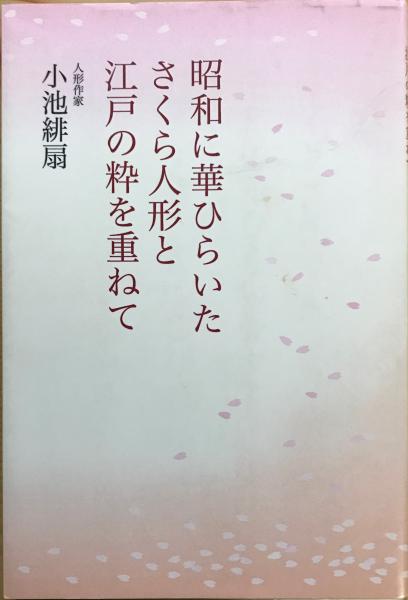 昭和に華ひらいた
さくら人形と
江戸の粋を重ねて
人形作家
小池緋扇